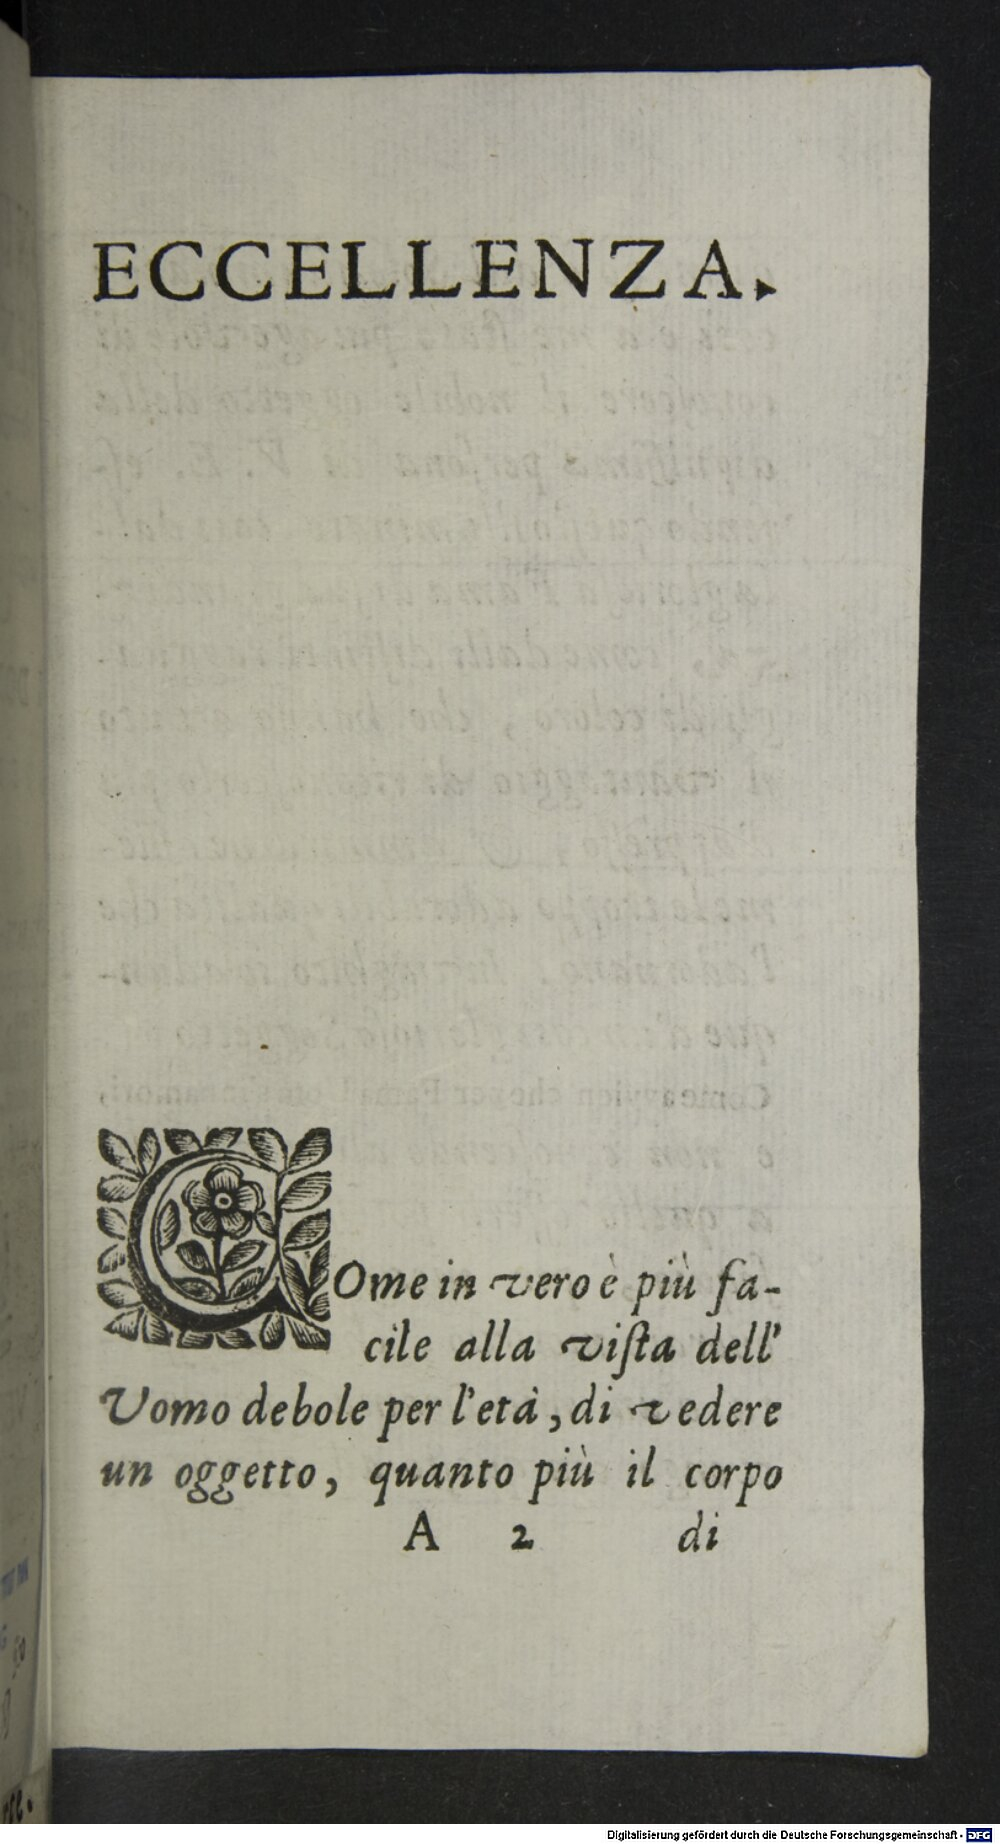 ECCELLENZA.
COme in vero è più fa-
cile alla viſta dell'
Vomo debole per l'età, di vedere
un oggetto, quanto più il corpo
A 2 di
Digitalisierung gefördert durch die Deutsche Forschungsgemeinschaft - DFG